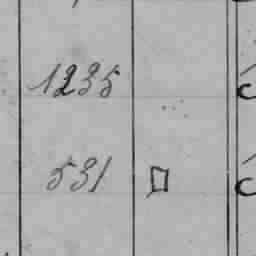 1235
531 □